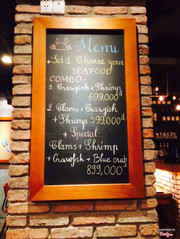 Menu
Set 1 Choose your
SEAFOOD
COMBO:
1. Crawfish + Shrimp
699,000đ
2. Clams + Crawfish
+ Shrimp 599,000đ
* Special:
Clams + Shrimp
+ Crawfish + Blue crab
899,000đ